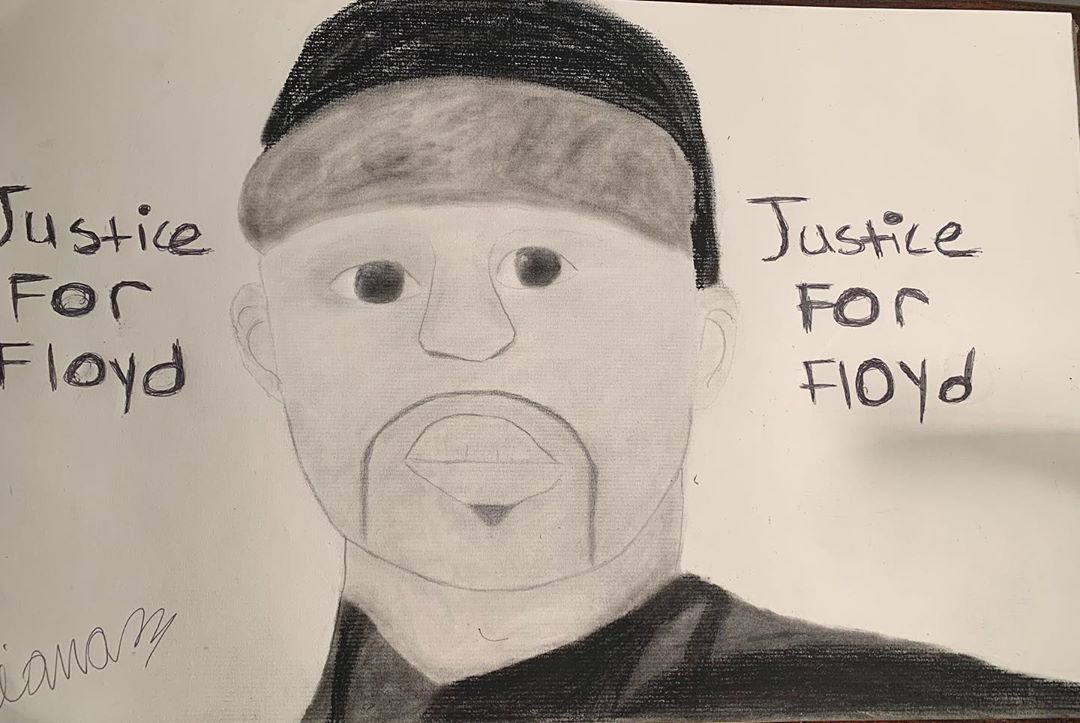 Justice
For
Floyd
Justice
For
Floyd